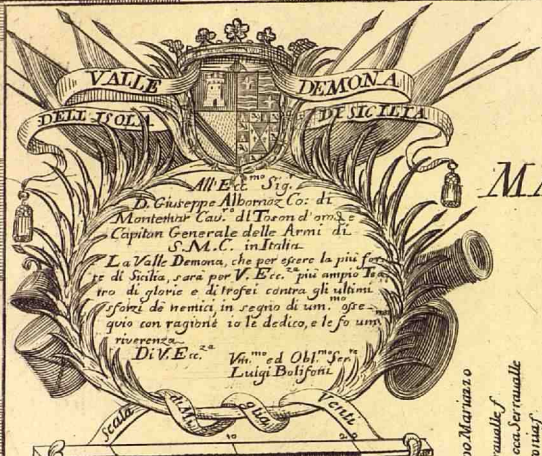 VALLE DEMONA
DELL ISOLA DI SICILIA
All' Ecc.mo Sig.r
D. Giuseppe Albornoz Co: di
Montemar Cav.ro dl Toson d'oro, e
Capitan Generale delle Armi di
S.M.C. in Italia
La Valle Demona, che per essere la più for=
te di Sicilia, sarà per V. Ecc.za più ampio Tea
tro di glorie e di trofei contra gli ultimi
sforzi de nemici, in segno di um.mo osse=
quio con ragione io le dedico, e le fo um.
riverenza
Di V. Ecc.za
Um.mo ed Obl.mo Ser.re
Luigi Bolifoni
Scala di Mi glia Venti
10 20
MA
Mariazzo
raualle f
occa Serraualle